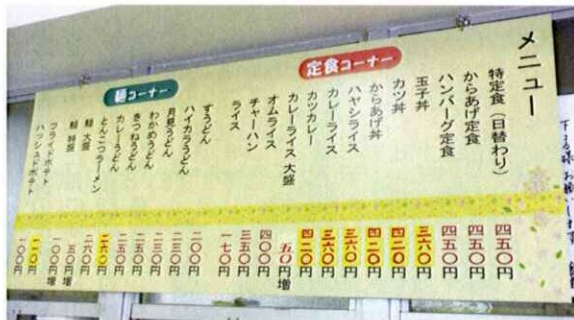 メニュー
特定食（日替わり） 四五〇円
からあげ定食 四五〇円
ハンバーグ定食 四五〇円
玉子丼 三六〇円
カツ丼 四二〇円
からあげ丼 四二〇円
ハヤシライス 三六〇円
カレーライス 三六〇円
カツカレー 四二〇円
カレーライス 大盛 五〇円増
オムライス 四〇〇円
チャーハン 三五〇円
ライス 一七〇円
定食コーナー
すうどん 二〇〇円
ハイカラうどん 二三〇円
月見うどん 二三〇円
わかめうどん 二五〇円
きつねうどん 二五〇円
カレーうどん
とんこつラーメン 二六〇円
麺 大盛 五〇円増
麺 特盛 一〇〇円増
フライドポテト 一一〇円
ハッシュドポテト 一〇〇円
麺コーナー